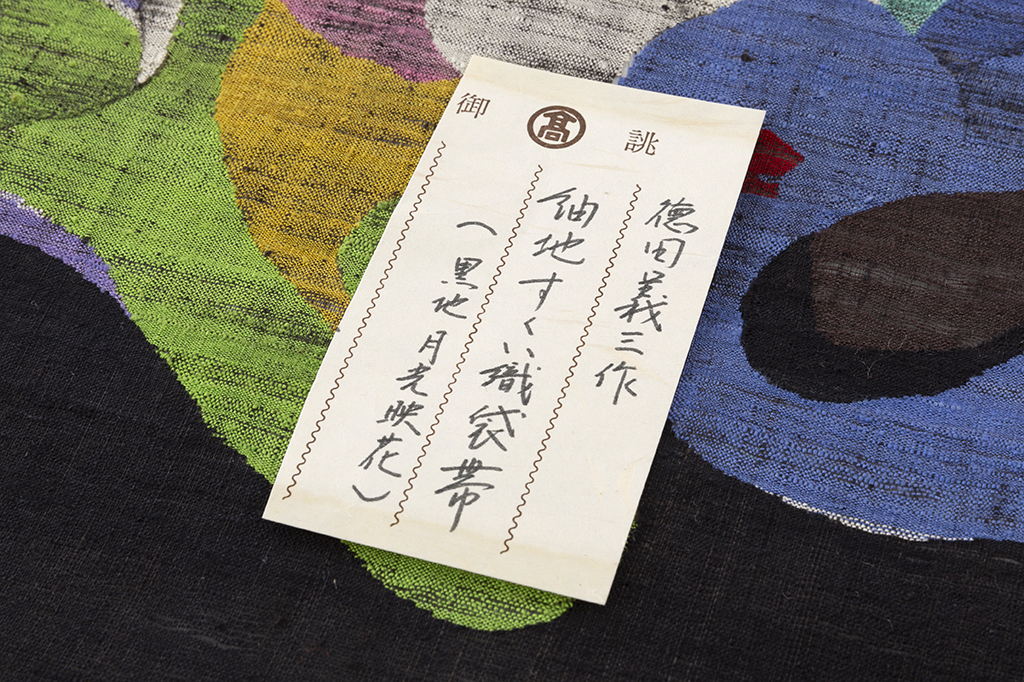 御 髙 誂
德田義三作
紬地すくい織袋帯
（黒地月光映花）